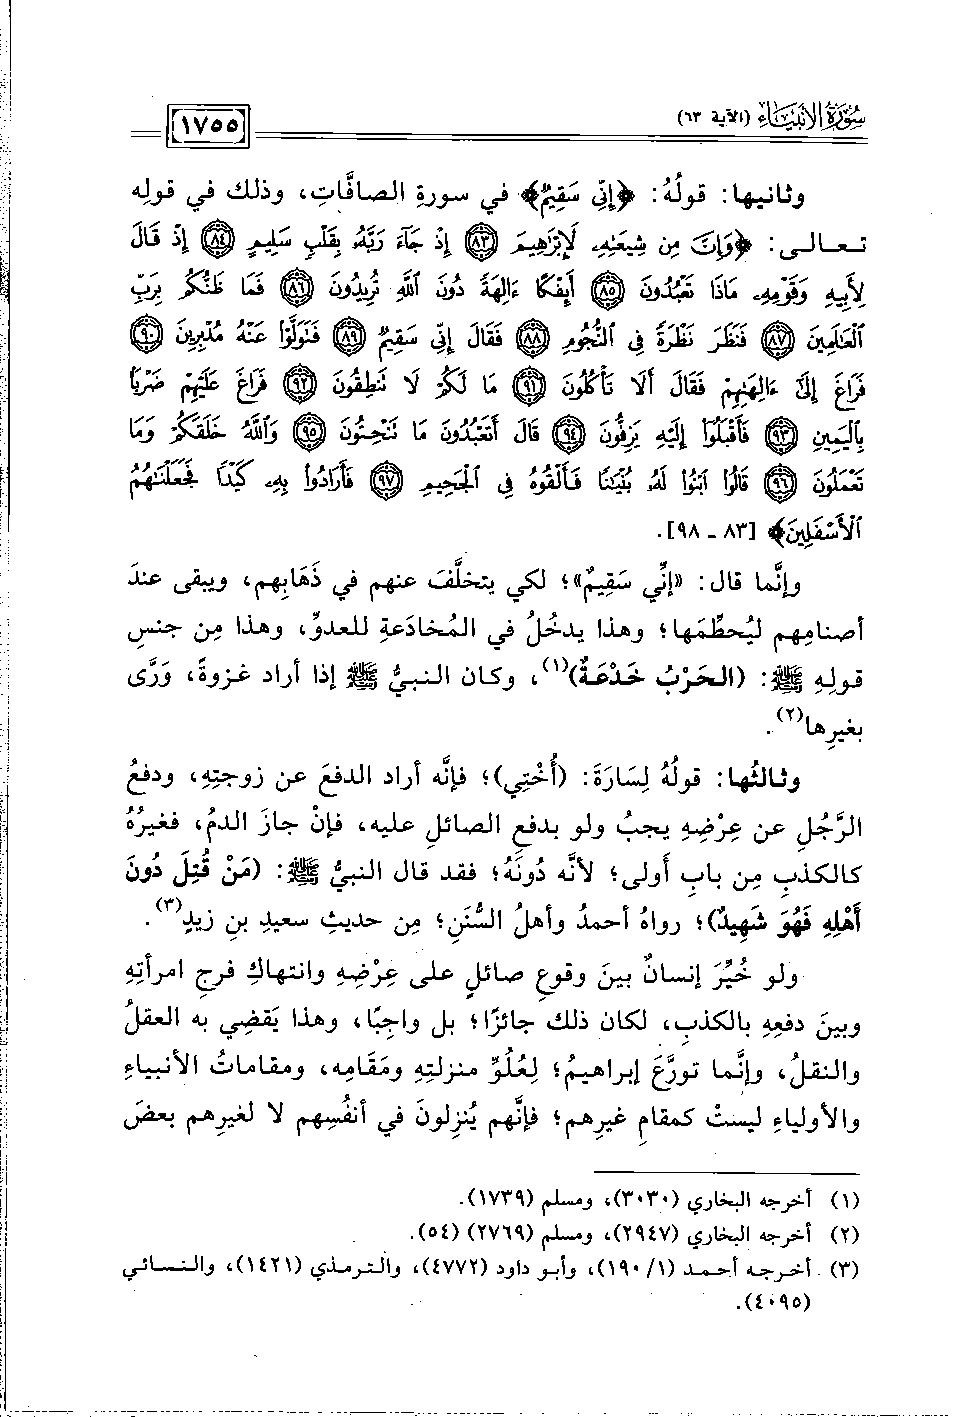 سُورَةُ الأَنبِيَاءِ (الآية ٦٣)
١٧٥٥
وثانيها: قولُهُ: ﴿إِنِّي سَقِيمٌ﴾ في سورةِ الصافَّاتِ، وذلك في قولِه
تعالى: ﴿وَإِنَّ مِن شِيعَتِهِۦ لَإِبْرَٰهِيمَ ۝٨٣ إِذْ جَآءَ رَبَّهُۥ بِقَلْبٍ سَلِيمٍ ۝٨٤ إِذْ قَالَ
لِأَبِيهِ وَقَوْمِهِۦ مَاذَا تَعْبُدُونَ ۝٨٥ أَئِفْكًا ءَالِهَةً دُونَ ٱللَّهِ تُرِيدُونَ ۝٨٦ فَمَا ظَنُّكُم بِرَبِّ
ٱلْعَٰلَمِينَ ۝٨٧ فَنَظَرَ نَظْرَةً فِى ٱلنُّجُومِ ۝٨٨ فَقَالَ إِنِّى سَقِيمٌ ۝٨٩ فَتَوَلَّوْاْ عَنْهُ مُدْبِرِينَ ۝٩٠
فَرَاغَ إِلَىٰٓ ءَالِهَتِهِمْ فَقَالَ أَلَا تَأْكُلُونَ ۝٩١ مَا لَكُمْ لَا تَنطِقُونَ ۝٩٢ فَرَاغَ عَلَيْهِمْ ضَرْبًۢا
بِٱلْيَمِينِ ۝٩٣ فَأَقْبَلُوٓاْ إِلَيْهِ يَزِفُّونَ ۝٩٤ قَالَ أَتَعْبُدُونَ مَا تَنْحِتُونَ ۝٩٥ وَٱللَّهُ خَلَقَكُمْ وَمَا
تَعْمَلُونَ ۝٩٦ قَالُواْ ٱبْنُواْ لَهُۥ بُنْيَٰنًا فَأَلْقُوهُ فِى ٱلْجَحِيمِ ۝٩٧ فَأَرَادُواْ بِهِۦ كَيْدًا فَجَعَلْنَٰهُمُ
ٱلْأَسْفَلِينَ﴾ [٨٣ ـ ٩٨].
وإنَّما قال: «إنِّي سَقِيمٌ»؛ لكي يتخلَّفَ عنهم في ذَهَابِهم، ويبقى عندَ
أصنامِهم ليُحطِّمَها؛ وهذا يدخُلُ في المُخادَعةِ للعدوِّ، وهذا مِن جنسِ
قولِهِ ﷺ: (الحَرْبُ خَدْعَةٌ)(١)، وكان النبيُّ ﷺ إذا أراد غزوةً، وَرَّى
بغيرِها(٢).
وثالثُها: قولُهُ لِسَارَةَ: (أُخْتِي)؛ فإنَّه أراد الدفعَ عن زوجتِهِ، ودفعُ
الرَّجُلِ عن عِرْضِهِ يجبُ ولو بدفعِ الصائلِ عليه، فإنْ جازَ الدمُ، فغيرُهُ
كالكذبِ مِن بابِ أَولى؛ لأنَّه دُونَهُ؛ فقد قال النبيُّ ﷺ: (مَنْ قُتِلَ دُونَ
أَهْلِهِ فَهُوَ شَهِيدٌ)؛ رواهُ أحمدُ وأهلُ السُّنَنِ؛ مِن حديثِ سعيدِ بنِ زيدٍ(٣).
ولو خُيِّرَ إنسانٌ بينَ وقوعِ صائلٍ على عِرْضِهِ وانتهاكِ فرجِ امرأتِهِ
وبينَ دفعِهِ بالكذبِ، لكان ذلك جائزًا؛ بل واجبًا، وهذا يَقضِي به العقلُ
والنقلُ، وإنَّما تورَّعَ إبراهيمُ؛ لِعُلُوِّ منزلتِهِ ومَقَامِه، ومقاماتُ الأنبياءِ
والأولياءِ ليستْ كمقامِ غيرِهم؛ فإنَّهم يُنزِلونَ في أنفُسِهم لا لغيرِهم بعضَ
(١) أخرجه البخاري (٣٠٣٠)، ومسلم (١٧٣٩).
(٢) أخرجه البخاري (٢٩٤٧)، ومسلم (٢٧٦٩) (٥٤).
(٣) أخرجه أحمد (١/ ١٩٠)، وأبو داود (٤٧٧٢)، والترمذي (١٤٢١)، والنسائي
(٤٠٩٥).